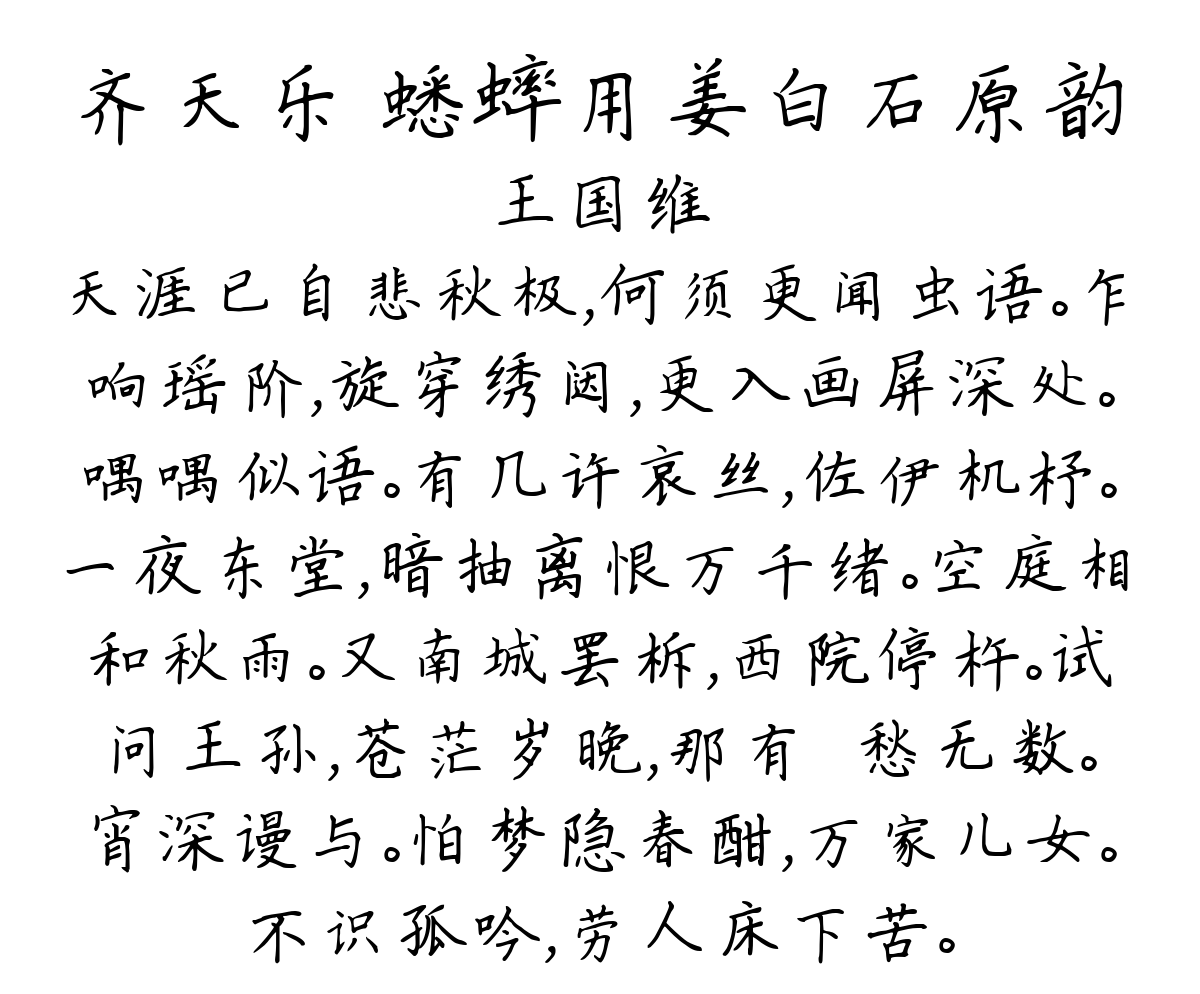 齐天乐 蟋蟀用姜白石原韵
王国维
天涯已自悲秋极,何须更闻虫语。乍
响瑶阶,旋穿绣闼,更入画屏深处。
喁喁似语。有几许哀丝,佐伊机杼。
一夜东堂,暗抽离恨万千绪。空庭相
和秋雨。又南城罢柝,西院停杵。试
问王孙,苍茫岁晚,那有 愁无数。
宵深谩与。怕梦隐春酣,万家儿女。
不识孤吟,劳人床下苦。